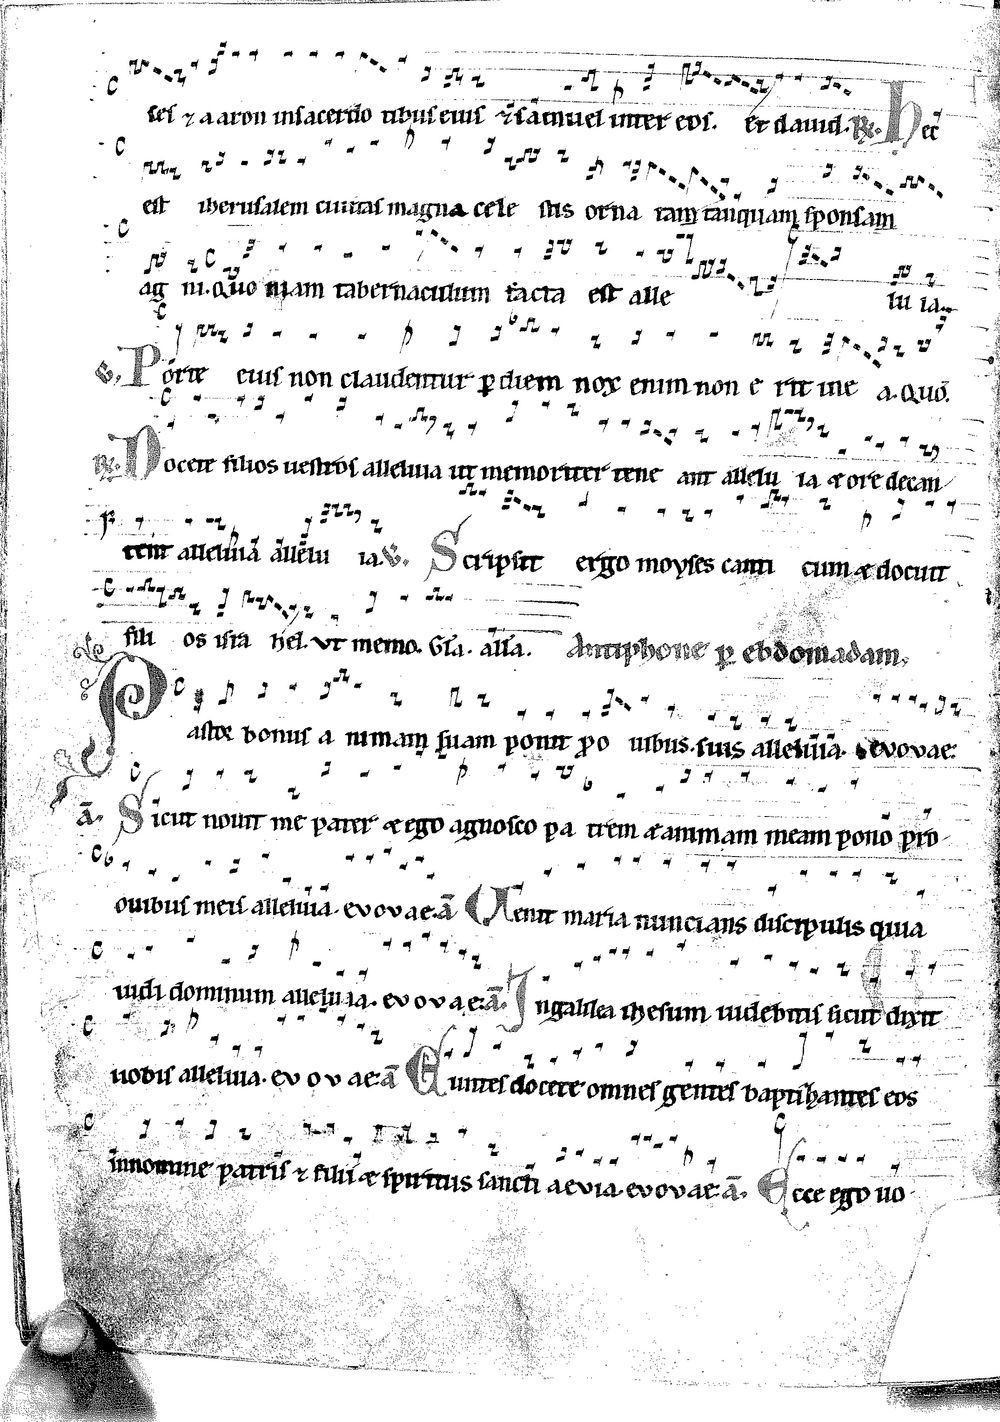 ses ⁊ aaron in sacerdo tibus eius ⁊ samuel inter eos. et dauid. ℟. Hec
est iherusalem ciuitas magna cele stis orna tam tanquam sponsam
ag ni. Quo niam tabernaculum facta est alle lu ia.
℣. Porte eius non claudentur ꝑ diem nox enim non e rit in e a. Quō.
℟. Docete filios uestros alleluia ut memoriter tene ant allelu ia ⁊ ore decan
tent alleluia allelu ia. ℣. Scripsit ergo moyses canti cum ⁊ docuit
fili os isra hel. Vt memo. Gła. alła. Antiphone ꝑ ebdomadam.
Pastor bonus a nimam suam ponit ꝓ o uibus suis alleluia. evovae.
ā. Sicut nouit me pater ⁊ ego agnosco pa trem ⁊ animam meam pono pro
ouibus meis alleluia. evovae. ā Uenit maria nuncians discipulis quia
uidi dominum alleluia. evovae. ā. In galilea ihesum uidebitis sicut dixit
uobis alleluia. evovae. ā Euntes docete omnes gentes baptizantes eos
in nomine patris ⁊ filii ⁊ spiritus sancti aevia. evovae. ā. Ecce ego uo